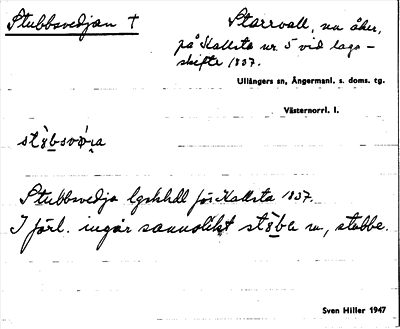 Stubbsvedjan †
Starrvall, nu åker,
på Kallsta nr. 5 vid laga-
skifte 1837.
Ullångers sn, Ångermanl. s. doms. tg.
Västernorrl. l.
Stubbsvedja lgskhdl för Kallsta 1837.
I förl. ingår sannolikt m, stubbe.
Sven Hiller 1947